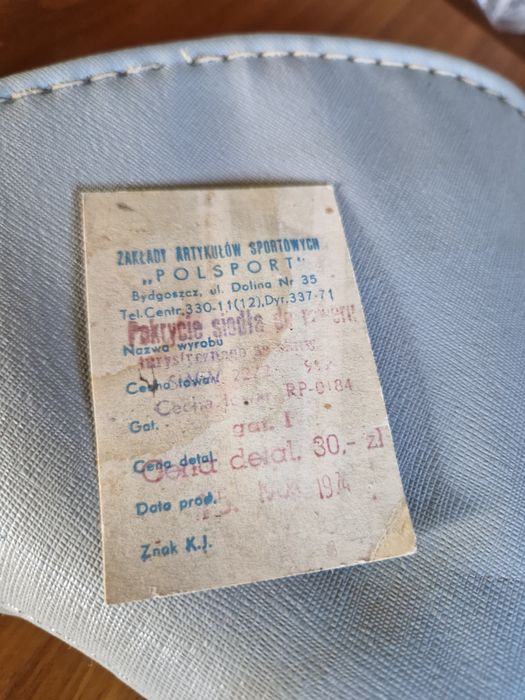 ZAKŁADY ARTYKUŁÓW SPORTOWYCH
„POLSPORT"
Bydgoszcz, ul. Dolina Nr 35
Tel.Centr.330-11(12),Dyr.337-71
Pokrycie siodła do roweru
Nazwa wyrobu
turystycznego
Cecha towar.
Cecha towar. RP-0184
Gat. gat. I
Cena detal.
Cena detal. 30,- zł
Data prod. 1974
Znak K.J.